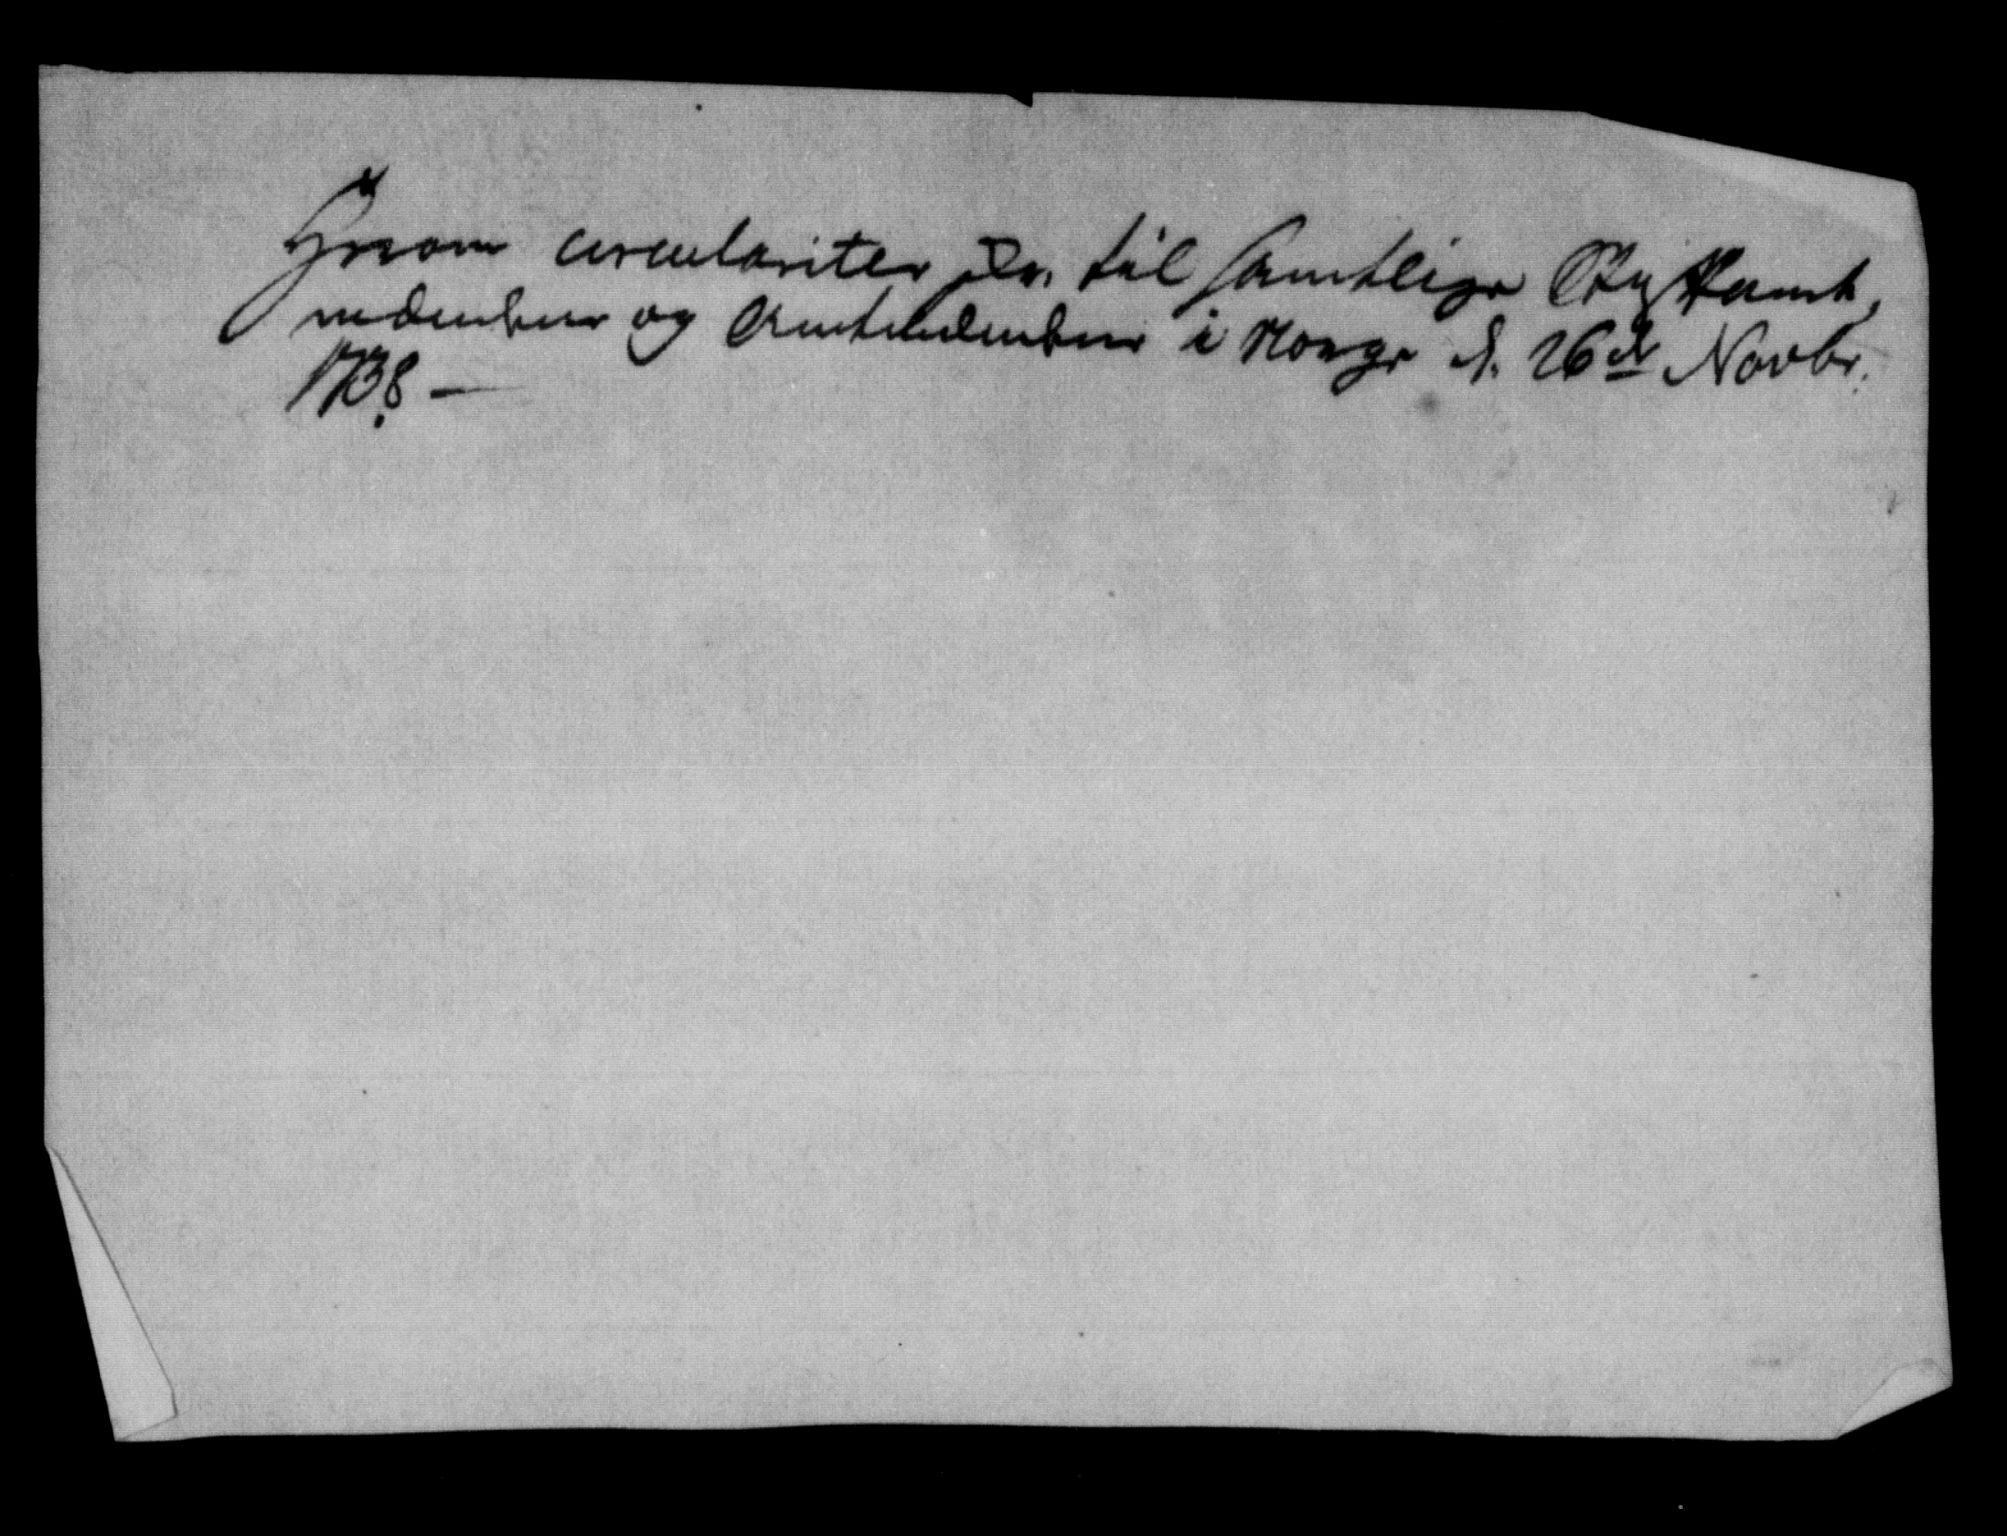 Hvorom circulariter skr. til samtlige Stiftamt,
mændene og Amtmændene i Norge d. 26de Novbr.
1738 –